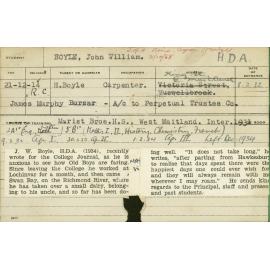 BOYLE, John William.
H.D.A.
STUDENT
PARENT OR GUARDIAN
OCCUPATION
ADDRESS
21-12-14
R.C
H.Boyle
Carpenter.
Victoria Street,
Muswellbrook.
8.2.32
James Murphy Bursar - A/c to Perpetual Trustee Co.
Marist Bros.H.S., West Maitland. Inter. 1931
Left Dec 1934
J. W. Boyle, H.D.A. (1934), recently
wrote for the College Journal, as he is
anxious to see how Old Boys are faring.
Since leaving the College he worked at
Lochinvar for a month, and then came to
Swan Bay, on the Richmond River, where
he has taken over a small dairy, belong-
ing to his uncle, and so far has been do-
ing well. "It does not take long," he
writes, "after parting from Hawkesbury
to realise that days spent there were the
happiest days one could ever wish for
and they will always remain with me
wherever I may roam." He sends kind
regards to the Principal, staff and present
and past students.